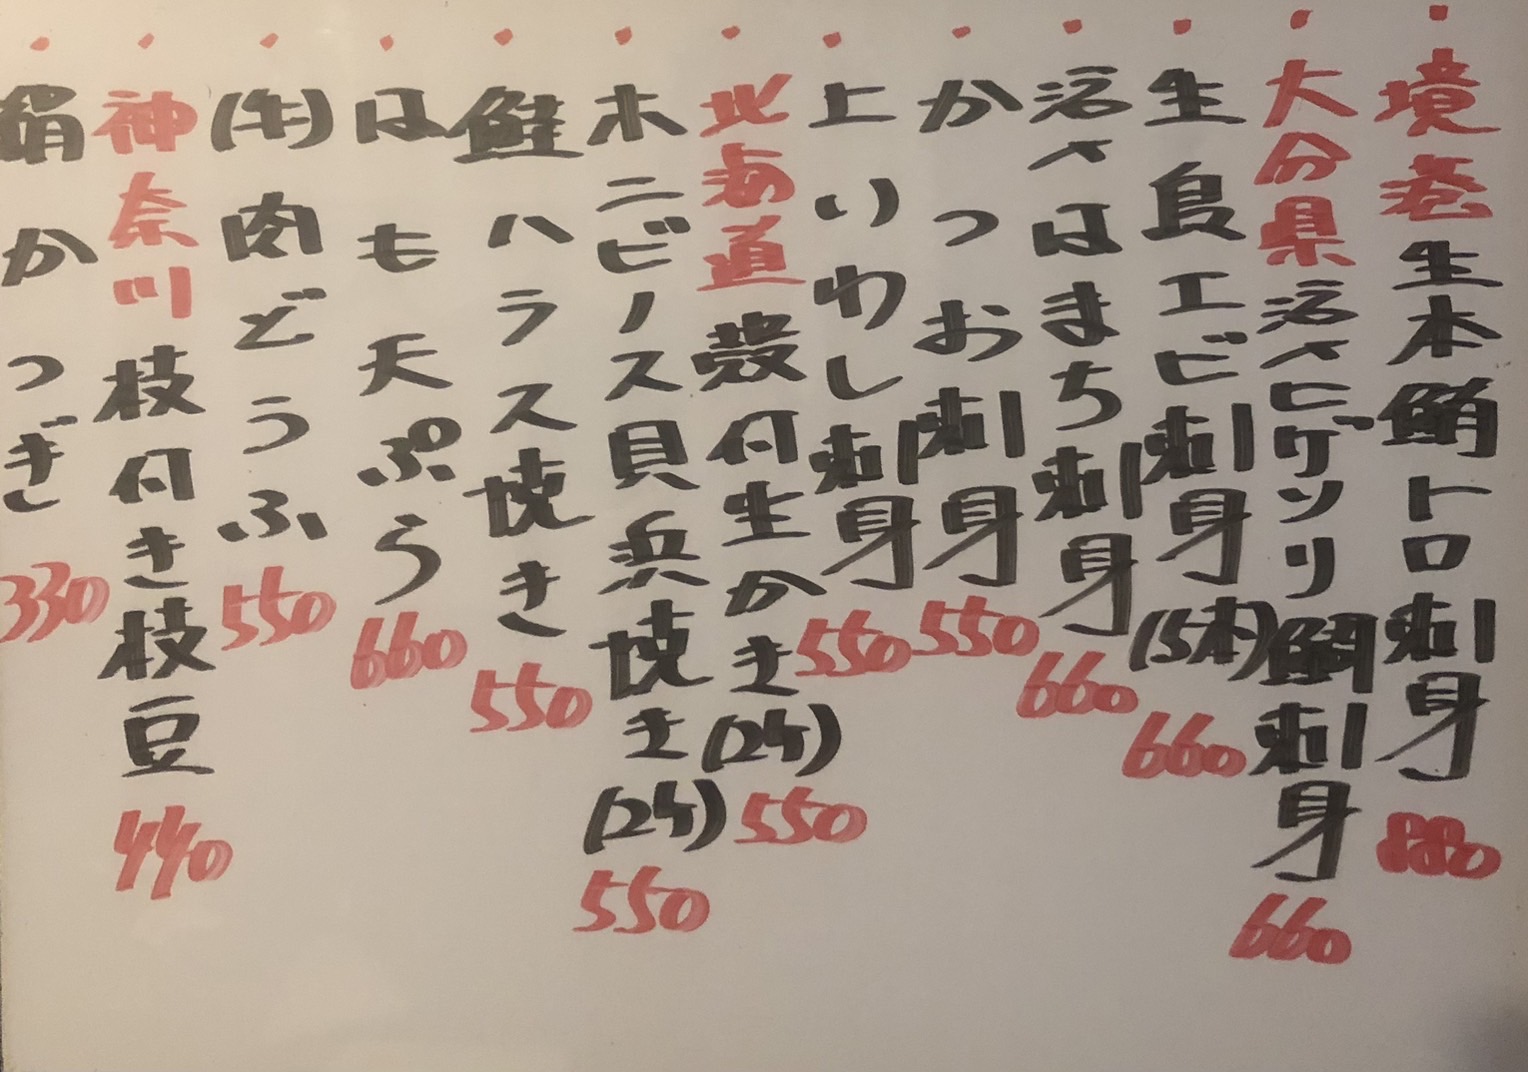 ・境港生本鮪トロ刺身 880
・大分県活〆ヒゲソリ鯛刺身 660
・生エビ刺身(5本) 660
・活〆はまち刺身 660
・かつお刺身 550
・上いわし刺身 550
・北海道殻付生かき(2ヶ) 550
・ホンビノス貝浜焼き(2ヶ) 550
・鮭ハラス焼き 550
・はも天ぷら 660
・(牛)肉どうふ 550
・神奈川枝付き枝豆 440
・絹かつぎ 330